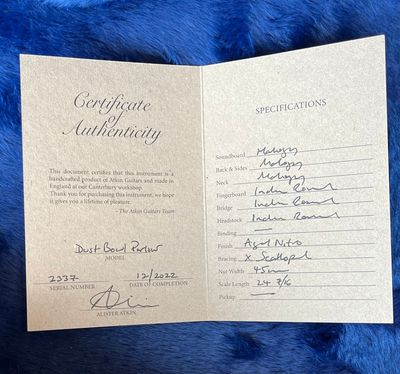 Certificate
of
Authenticity
This document certifies that this instrument is a
handcrafted product of Atkin Guitars and made in
England at our Canterbury workshop.
Thank you for purchasing this instrument, we hope
it gives you a lifetime of pleasure.
- The Atkin Guitars Team
Dust Bowl Parlour
MODEL
2337 12/2022
SERIAL NUMBER DATE OF COMPLETION
ALISTER ATKIN
SPECIFICATIONS
Soundboard Mahogy
Back & Sides Mahogy
Neck Mahogy
Fingerboard Indian
Bridge Indian
Headstock Indian
Binding —
Finish Aged Nitro
Bracing X Scalloped
Nut Width 45mm
Scale Length 24 7/16
Pickup —